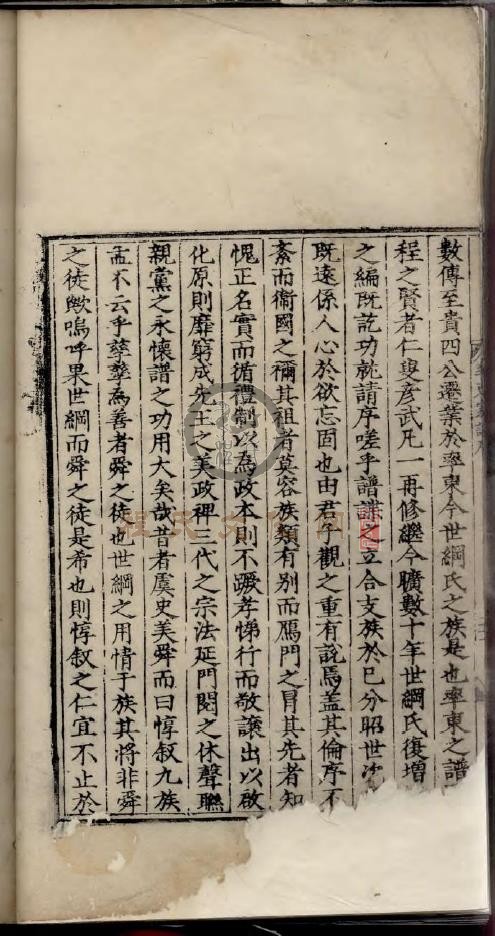 數傳至貴四公遷葉於率東今世綱氏之族是也率東之譜
程之賢者仁叟彥武凡一再修繼今曠數十年世綱氏復增
之編既訖功就請序嗟乎譜諜之立合支族於已分昭世
既遠係人心於欲忘固也由君子觀之重有說焉蓋其倫序不
紊而衞國之禰其祖者莫容族類有別而鴈門之冒其先者知
愧正名實而循禮制以為政本則不蹶孝悌行而敬讓出以啟
化原則靡窮成先王之美政稗三代之宗法延門閥之休聲聯
親黨之永懷譜之功用大矣哉昔者虞史美舜而曰惇叙九族
孟不云乎孳孳為善者舜之徒也世綱之用情于族其將非舜
之徒歟嗚呼果世綱而舜之徒是希也則惇叙之仁宜不止於